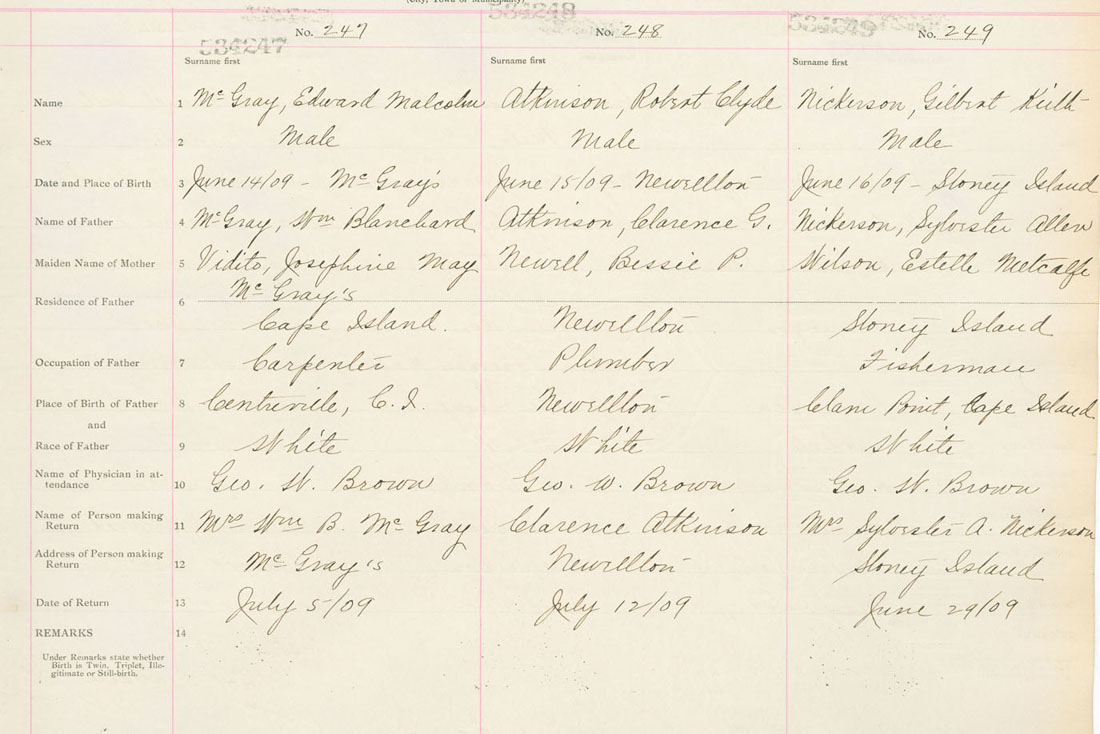 (City, Town or Municipality)
534247 534248 534249
No. 247 No. 248 No. 249
Surname first Surname first Surname first
Name 1 McGray, Edward Malcolm Atkinson, Robert Clyde Nickerson, Gilbert Keith
Sex 2 Male Male Male
Date and Place of Birth 3 June 14/09 - McGray's June 15/09 - Newellton June 16/09 - Stoney Island
Name of Father 4 McGray, Wm Blanchard Atkinson, Clarence G. Nickerson, Sylvester Allen
Maiden Name of Mother 5 Vidito, Josephine May Newell, Bessie P. Wilson, Estelle Metcalfe
McGray's
Residence of Father 6 Cape Island. Newellton Stoney Island
Occupation of Father 7 Carpenter Plumber Fisherman
Place of Birth of Father 8 Centreville, C.I. Newellton Clam Point, Cape Island
and
Race of Father 9 White White White
Name of Physician in at-
tendance 10 Geo. W. Brown Geo. W. Brown Geo. W. Brown
Name of Person making
Return 11 Mrs Wm B. McGray Clarence Atkinson Mrs Sylvester A. Nickerson
Address of Person making
Return 12 McGray's Newellton Stoney Island
Date of Return 13 July 5/09 July 12/09 June 29/09
REMARKS 14
Under Remarks state whether
Birth is Twin, Triplet, Ille-
gitimate or Still-birth.